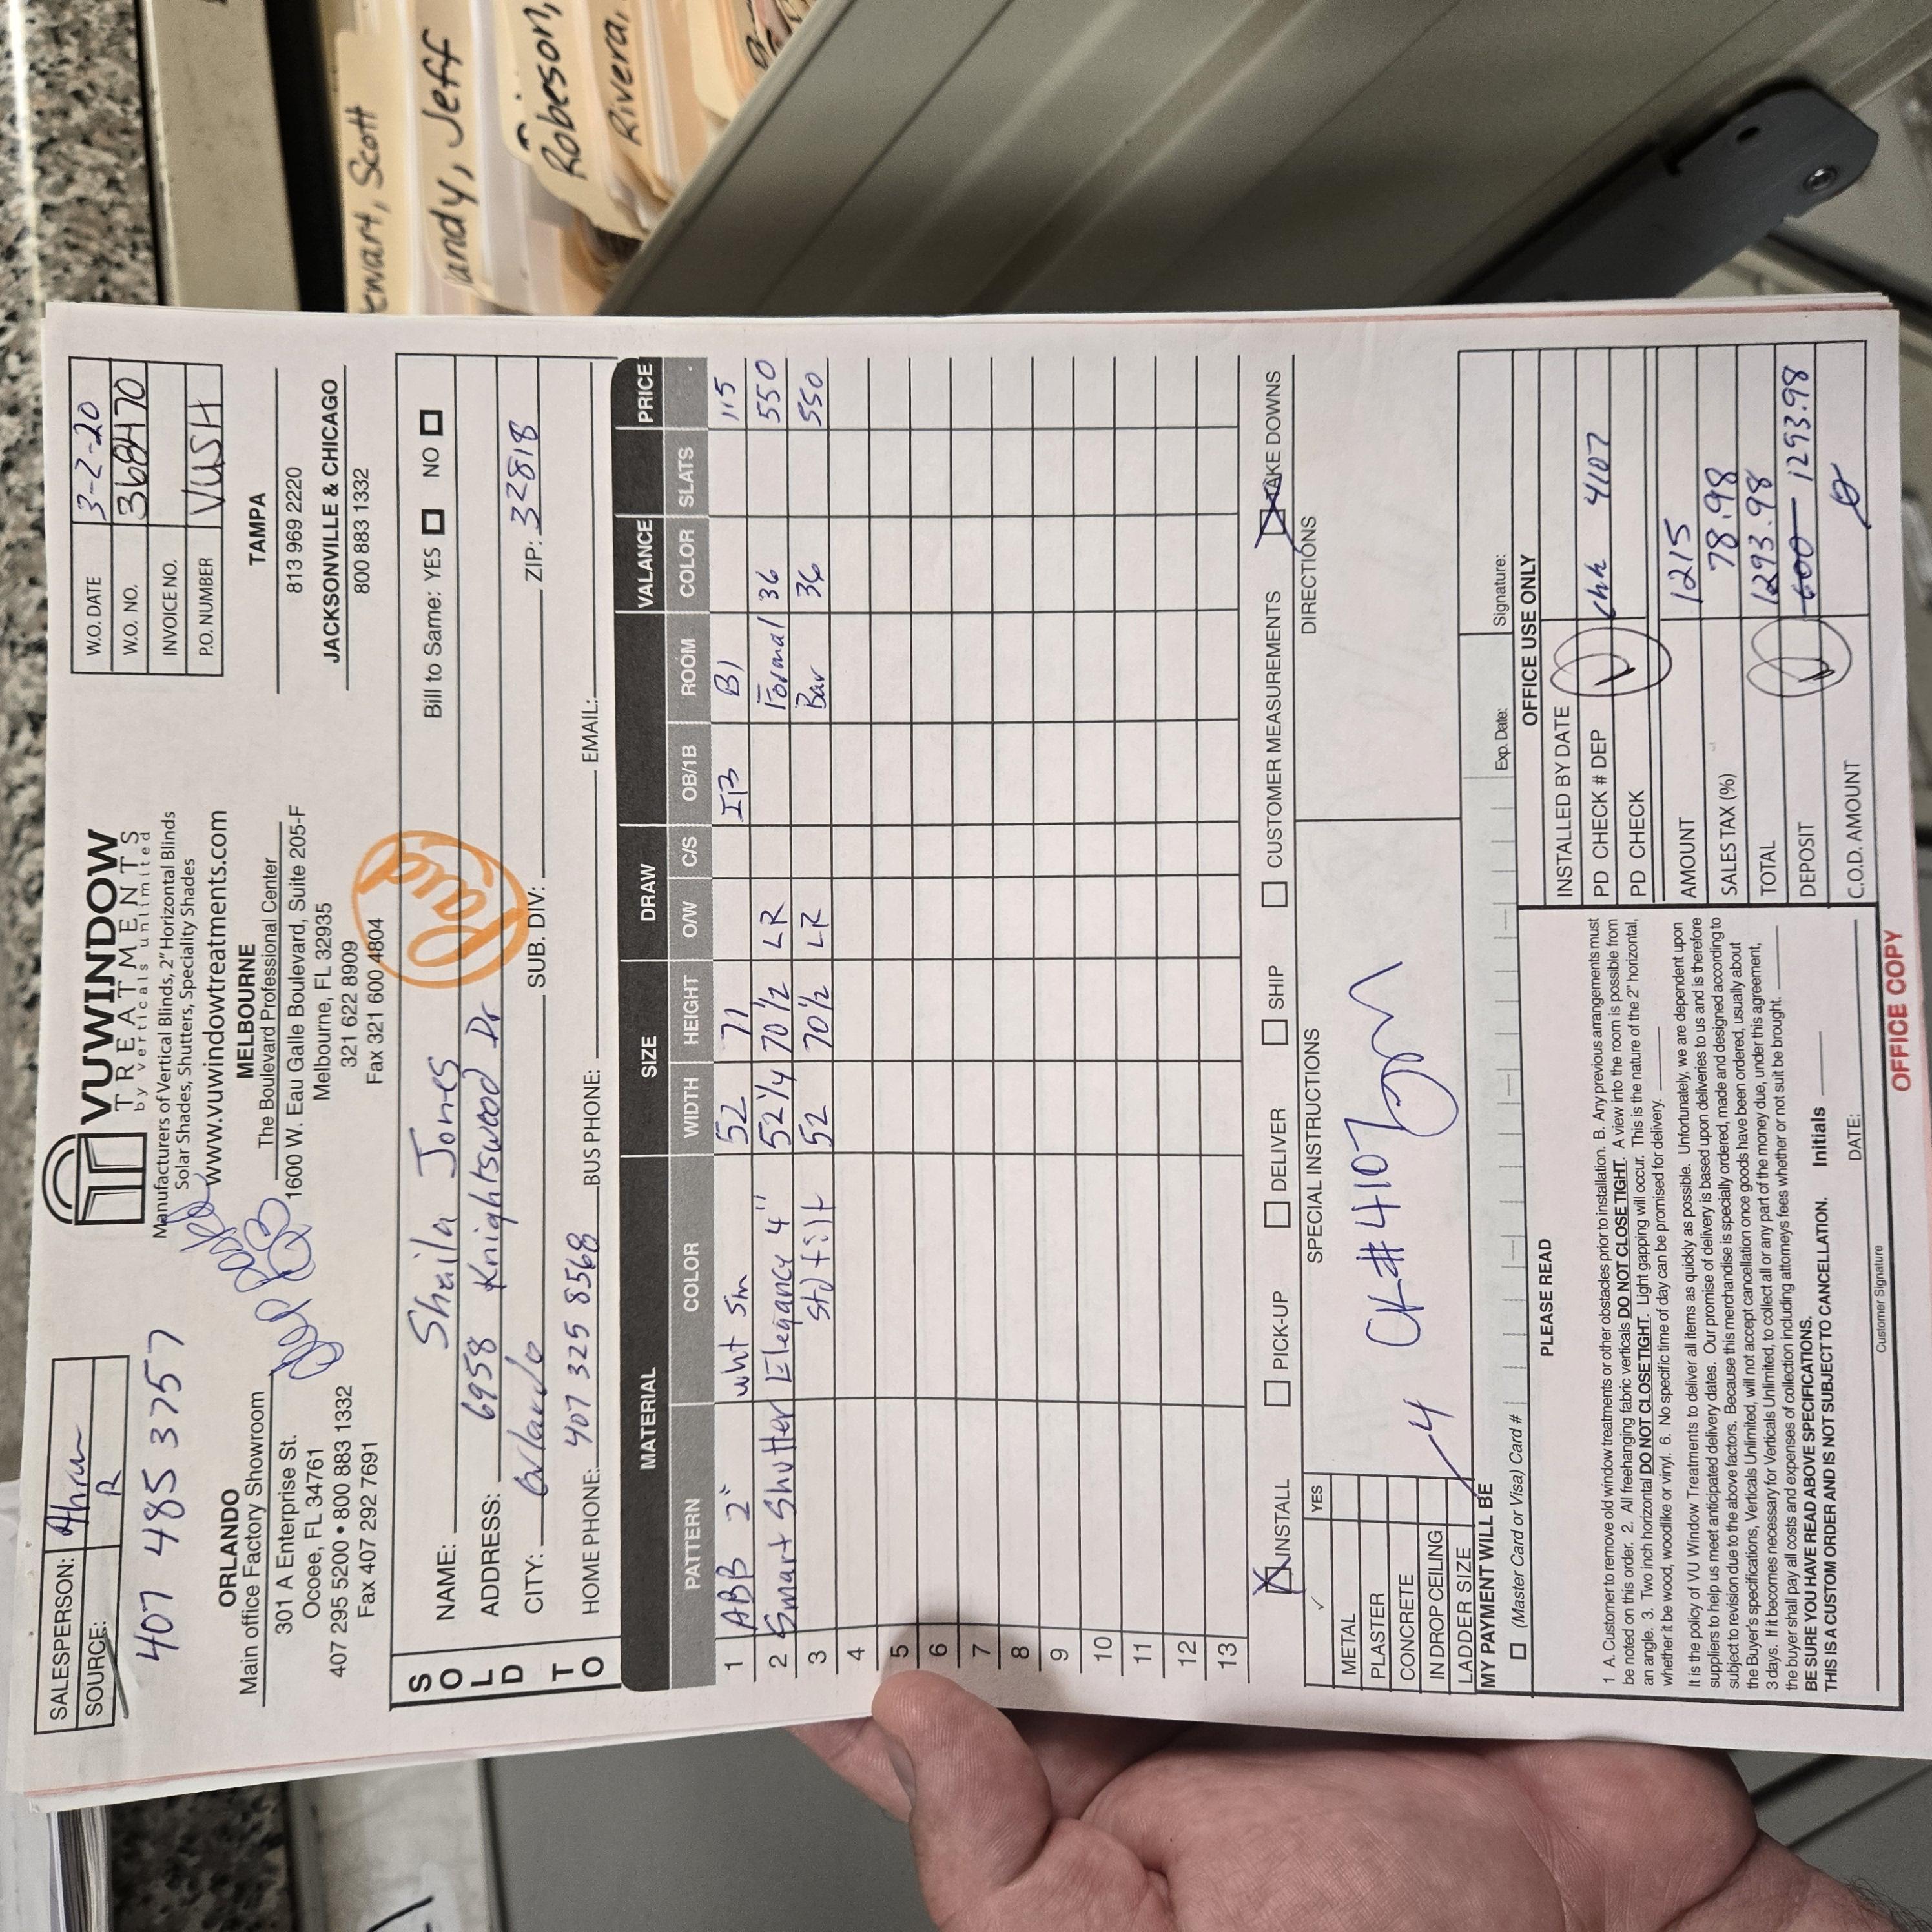 SALESPERSON:
SOURCE: R
407 485 3757
VUWINDOW
TREATMENTS
by verticals unlimited
Manufacturers of Vertical Blinds, 2" Horizontal Blinds
Solar Shades, Shutters, Speciality Shades
www.vuwindowtreatments.com
W.O. DATE 3-2-20
W.O. NO. 368470
INVOICE NO.
P.O. NUMBER VUSH
ORLANDO
Main office Factory Showroom
301 A Enterprise St.
Ocoee, FL 34761
407 295 5200 • 800 883 1332
Fax 407 292 7691
MELBOURNE
The Boulevard Professional Center
1600 W. Eau Galle Boulevard, Suite 205-F
Melbourne, FL 32935
321 622 8909
Fax 321 600 4804
TAMPA
813 969 2220
JACKSONVILLE & CHICAGO
800 883 1332
Paid
SOLD TO
NAME: Shaila Jones Bill to Same: YES NO
ADDRESS: 6958 Knightswood Dr
CITY: Orlando SUB. DIV: ZIP: 32818
HOME PHONE: 407 325 8568 BUS PHONE: EMAIL:
MATERIAL SIZE DRAW VALANCE PRICE
PATTERN COLOR WIDTH HEIGHT O/W C/S OB/1B ROOM COLOR SLATS
1 ABB 2" wht sm 52 71 IB B1 115
2 Smart Shutter Elegancy 4" 52 1/4 70 1/2 LR Formal 36 550
3 Std tilt 52 70 1/2 LR Bar 36 550
4
5
6
7
8
9
10
11
12
13
INSTALL PICK-UP DELIVER SHIP CUSTOMER MEASUREMENTS TAKE DOWNS
✓ YES
METAL
PLASTER
CONCRETE
IN DROP CEILING
LADDER SIZE 4
SPECIAL INSTRUCTIONS
CK#4107
DIRECTIONS
MY PAYMENT WILL BE
(Master Card or Visa) Card # Exp. Date: Signature:
PLEASE READ
1 A. Customer to remove old window treatments or other obstacles prior to installation. B. Any previous arrangements must
be noted on this order. 2. All freehanging fabric verticals DO NOT CLOSE TIGHT. A view into the room is possible from
an angle. 3. Two inch horizontal DO NOT CLOSE TIGHT. Light gapping will occur. This is the nature of the 2" horizontal,
whether it be wood, woodlike or vinyl. 6. No specific time of day can be promised for delivery.
It is the policy of VU Window Treatments to deliver all items as quickly as possible. Unfortunately, we are dependent upon
suppliers to help us meet anticipated delivery dates. Our promise of delivery is based upon deliveries to us and is therefore
subject to revision due to the above factors. Because this merchandise is specially ordered, made and designed according to
the Buyer's specifications, Verticals Unlimited, will not accept cancellation once goods have been ordered, usually about
3 days. If it becomes necessary for Verticals Unlimited, to collect all or any part of the money due, under this agreement,
the buyer shall pay all costs and expenses of collection including attorneys fees whether or not suit be brought.
BE SURE YOU HAVE READ ABOVE SPECIFICATIONS.
THIS IS A CUSTOM ORDER AND IS NOT SUBJECT TO CANCELLATION. Initials
Customer Signature DATE:
OFFICE USE ONLY
INSTALLED BY DATE
PD CHECK # DEP chk 4107
PD CHECK
AMOUNT 1215
SALES TAX (%) 78.98
TOTAL 1293.98
DEPOSIT 600 1293.98
C.O.D. AMOUNT
OFFICE COPY
ewart, Scott
andy, Jeff
Robeson,
Rivera,